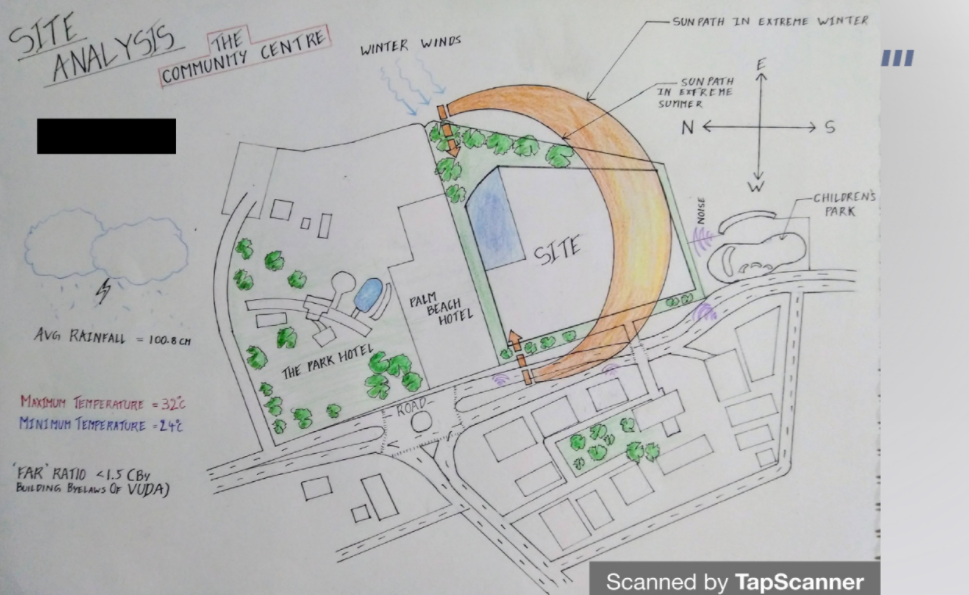 SITE
ANALYSIS
THE
COMMUNITY CENTRE
WINTER WINDS
SUN PATH IN EXTREME WINTER
SUN PATH
IN EXTREME
SUMMER
E
N
S
W
NOISE
CHILDREN'S
PARK
SITE
PALM
BEACH
HOTEL
THE PARK HOTEL
ROAD
AVG RAINFALL = 100.8 CM
MAXIMUM TEMPERATURE = 32°C
MINIMUM TEMPERATURE = 24°C
'FAR' RATIO < 1.5 (BY
BUILDING BYELAWS OF VUDA)
Scanned by TapScanner